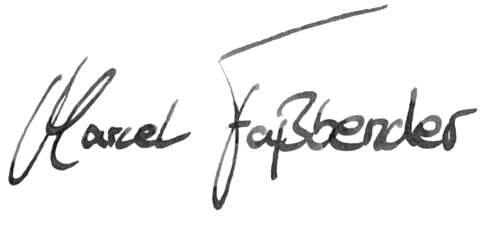 Marcel Faßbender